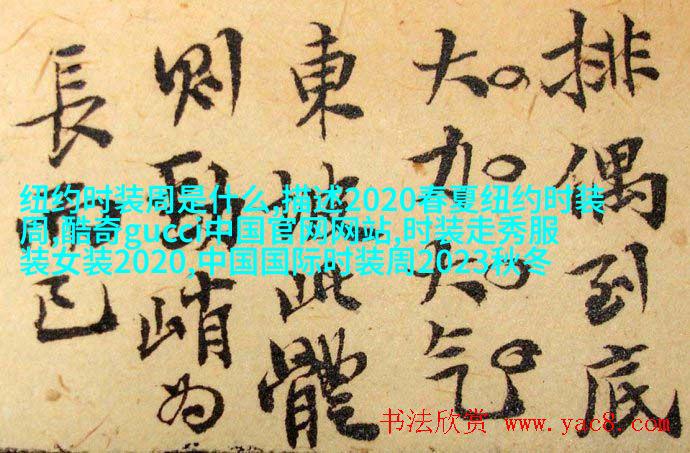 排偶到底
大力大气
東坡此體
則勁峭為
長而已
纽约时装周是什么,描述2020春夏纽约时装
周,酷奇gucci中国官网网站,时装走秀服
装女装2020,中国国际时装周2023秋冬
书法欣赏 www.yac8.com